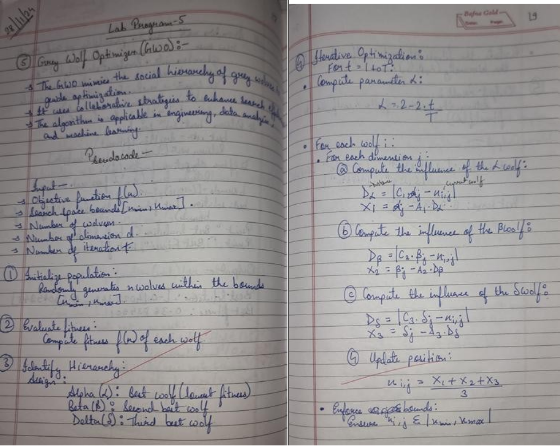 Lab Program-5
⑤ Grey Wolf Optimizer (GWO):-
→ The GWO mimics the social hierarchy of grey
guide optimization.
→ It uses collaborative strategies to enhance search
→ The algorithm is applicable in engineering, data analysis,
and machine learning.
Pseudocode—
Input—
→ Objective function f(x)
→ Search space bounds [xmin, xmax].
→ Number of wolves n
→ Number of dimension d
→ Number of iteration T
① Initialize population:
Randomly generate n wolves within the bounds
[xmin, xmax].
② Evaluate fitness:
Compute fitness f(x) of each wolf
③ Identify Hierarchy:
Assign:
Alpha (α): Best wolf (lowest fitness)
Beta (β): Second best wolf
Delta (δ): Third best wolf
19
④ Iterative Optimization:
For t = 1 to T:
• Compute parameter α:
α = 2-2·t/T
• For each wolf i:
• For each dimension j:
ⓐ Compute the influence of the α wolf:
Dα = |C1·αj - xi,j|
X1 = αj - A1·Dα
ⓑ Compute the influence of the β wolf:
Dβ = |C2·βj - xi,j|
X2 = βj - A2·Dβ
ⓒ Compute the influence of the δ wolf:
Dδ = |C3·δj - xi,j|
X3 = δj - A3·Dδ
Update position:
xi,j = X1 + X2 + X3 / 3
• Enforce bounds:
Ensure xi,j ∈ [xmin, xmax]